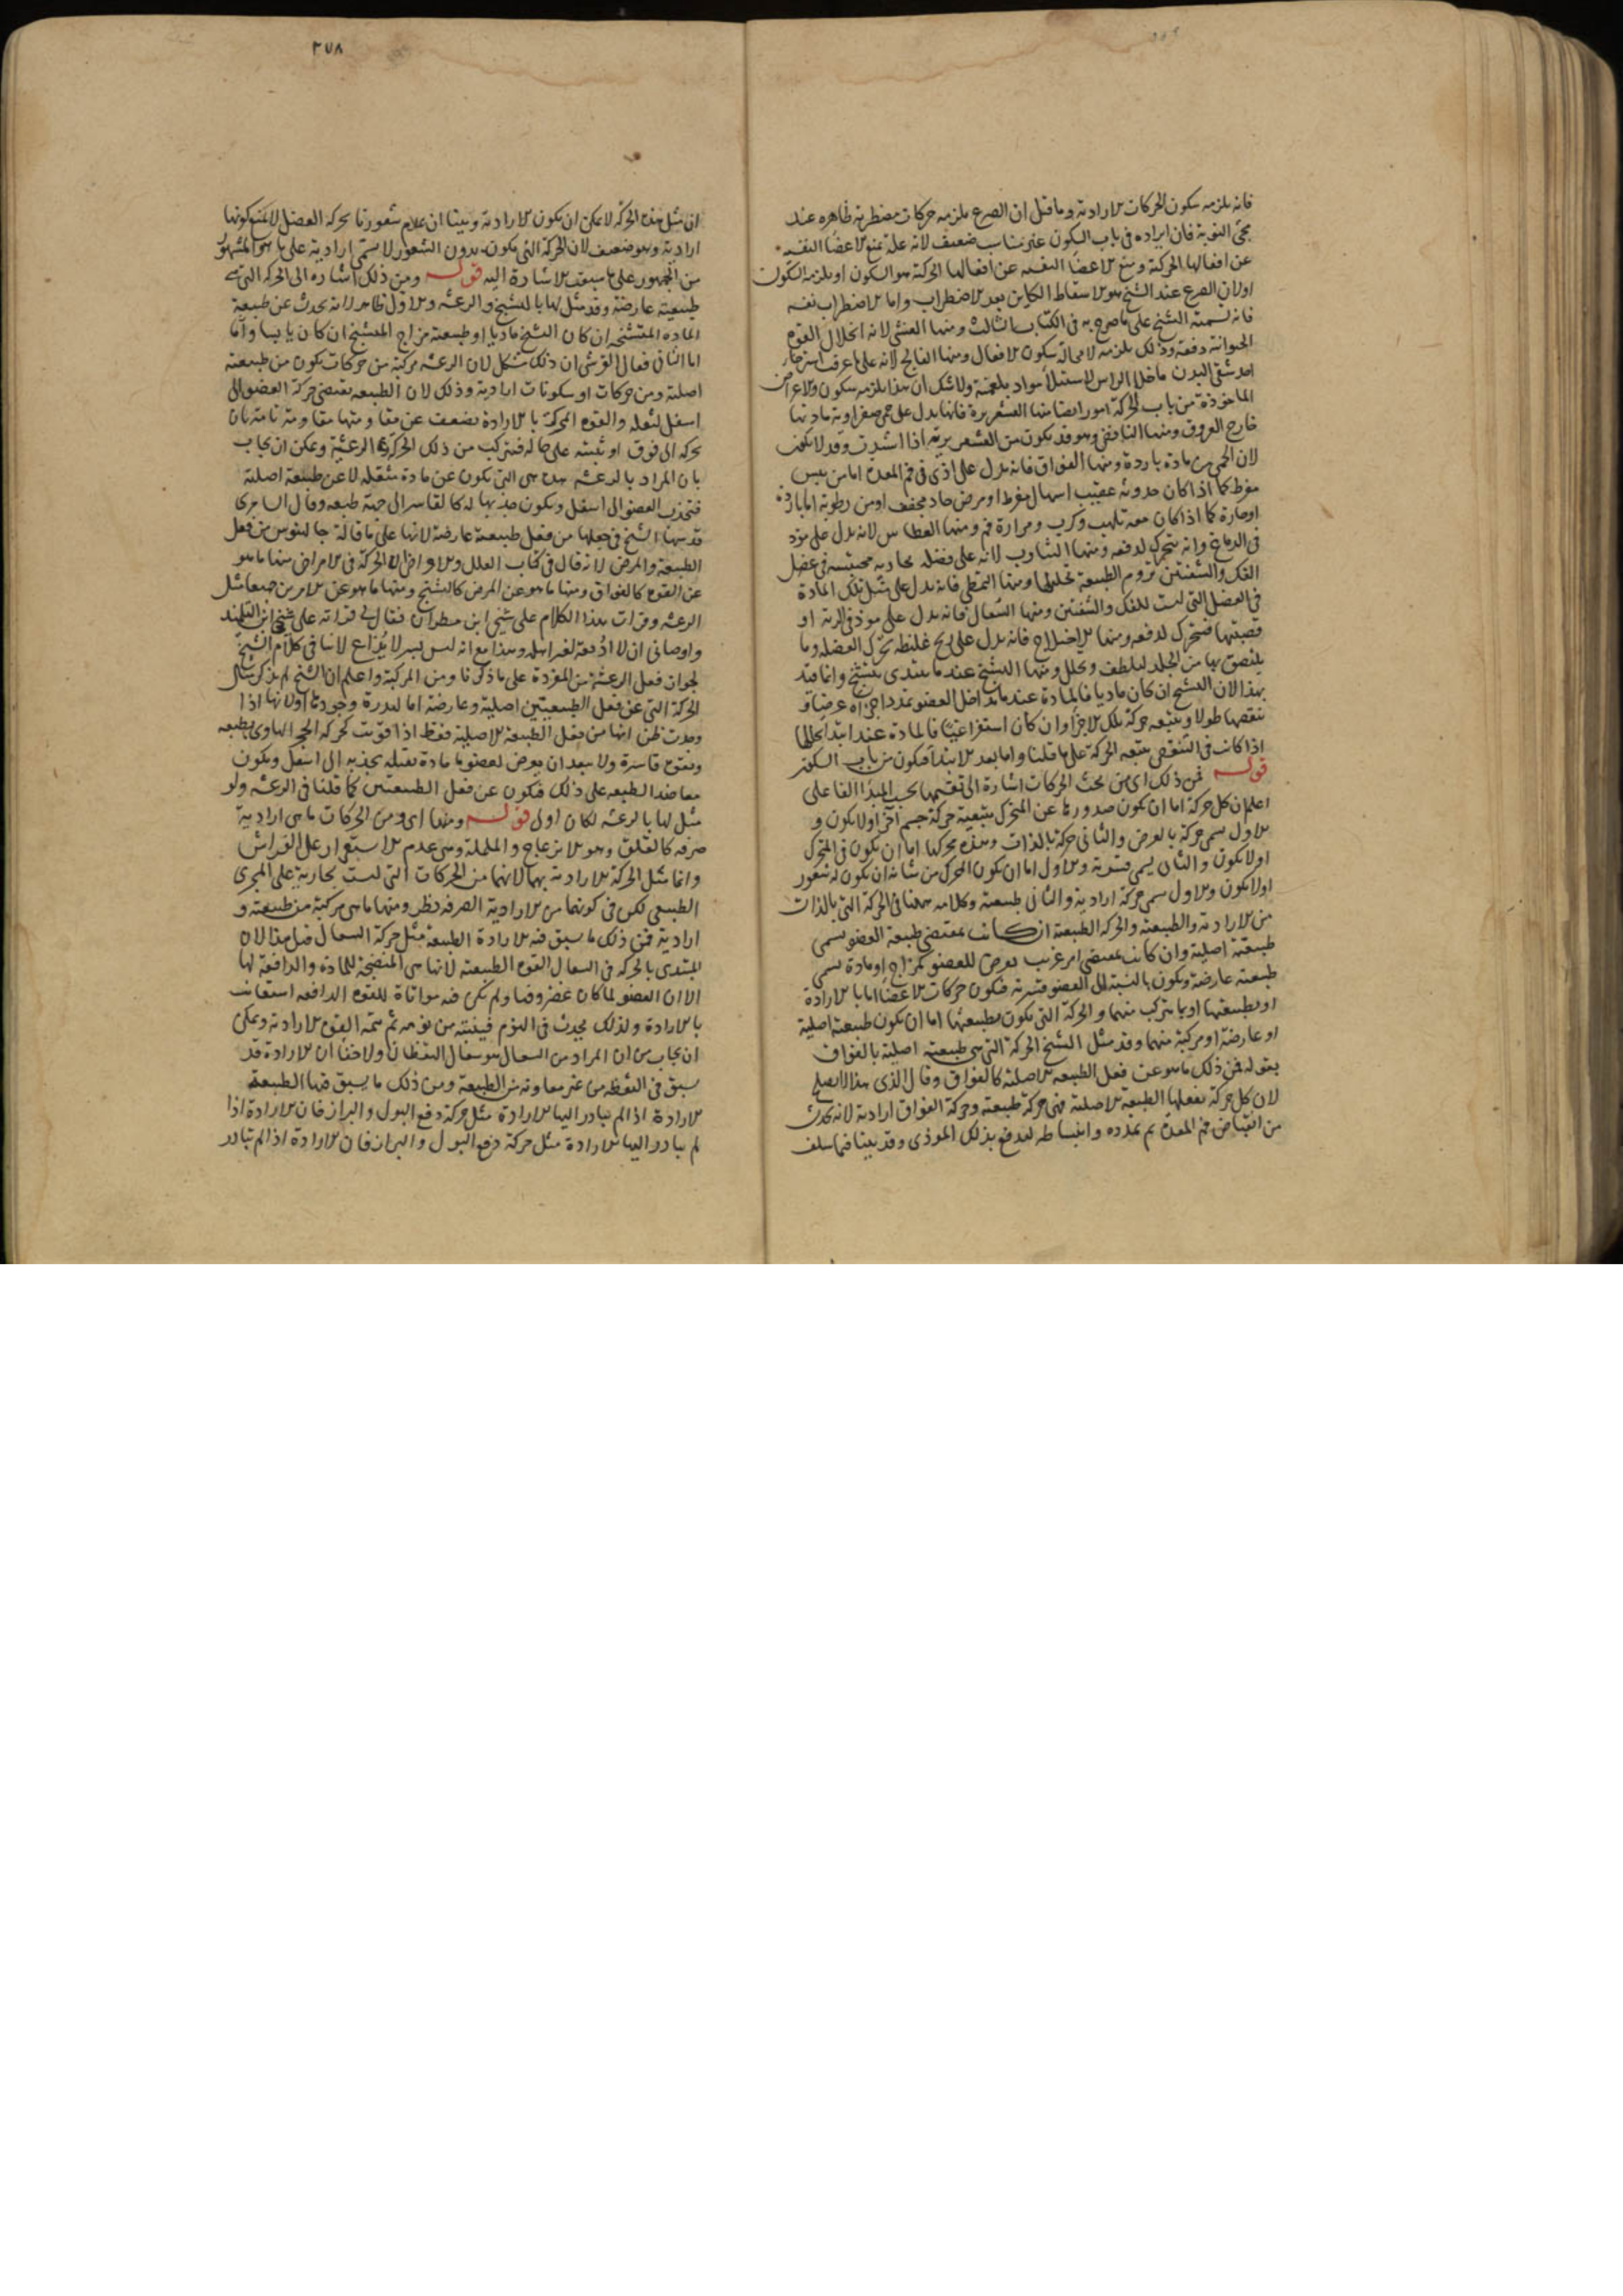 فانه يلزمه سكون الحركات الارادية وما قيل ان الصرع يلزمه حركات مضطربة ظاهره عند
مجئ النوبة فان ايراده فى باب السكون غير مناسب ضعيف لانه علة تمنع الاعضا النفسيه
عن افعالها الحركية ومنع الاعضا النفسيه عن افعالها الحركة هو السكون او يلزمه السكون
اولان الصرع عند الشيخ هو الاسقاط الكاين بعد الاضطراب واما الاضطراب نفسه
فانه يسميه الشيخ على ما صرح به فى الكتاب الثالث ومنها الغشى لانه انحلال القوة
الحيوانية دفعة وذلك يلزمه لا محالة سكون الافعال ومنها الفالج لانه على ما عرفت استرخاء
احد شقى البدن ماخلا الراس لاستيلا مواد بلغمية ولا شك ان هذا يلزمه سكون والاعراض
الماخوذة من باب الحركة امور ايضا منها القشعريرة فانها يدل على حمى صفراوية مادتها
خارج العروق ومنها النافض وهو قد يكون من القشعريرية اذا اشتدت وقد لا يكون
لان الحمى من مادة باردة ومنها الفواق فانه يدل على اذى فى فم المعدة اما من يبس
مفرط كما اذا كان حدوثه عقيب اسهال مفرط او مرض حاد مجفف او من رطوبة اما باردة
او حارة كما اذا كان معه تلهب وكرب ومرارة فم ومنها العطاس لانه يدل على موذ
فى الدماغ وانه يتحرك لدفعه ومنها التثاوب لانه على فضله بخاريه محتبسه فى عضل
الفك والشفتين تروم الطبيعة تحليلها ومنها التمطى فانه يدل على مثل تلك المادة
فى العضل التى ليست للفك والشفتين ومنها السعال فانه يدل على موذ فى الرية او
قصبتها فيتحرك لدفعه ومنها الاختلاج فانه يدل على ريح غليظه تحرك العضله وما
يلتصق بها من الجلد ليلطف ويحلل ومنها التشنج عند ما يبتدى بتشنج وانما قيد
بهذا لان التشنج ان كان ماديا فالمادة عند ما تداخل العضو تمدد اجزاه عرضا و
تنقصها طولا ويتبعه حركة تلك الاجزا وان كان استفراغيا فالمادة عند ابتدا تحللها
اذا كانت فى التنقص يتبعه الحركة على ما قلنا واما بعد الابتدا فيكون من باب السكون
قوله فمن ذلك اى من بحث الحركات اشارة الى تقسيمها بحسب المبدا الفاعلى
اعلم ان كل حركة اما ان يكون صدورها عن المتحرك بتبعية حركة جسم آخر اولا يكون و
الاول يسمى حركة بالعرض والثانى حركة بالذات وهذه محركها اما ان يكون فى المتحرك
اولا يكون والثانى يسمى قسرية والاول اما ان يكون المحرك من شانه ان يكون له شعور
اولا يكون والاول يسمى حركة ارادية والثانى طبيعية وكلامه ههنا فى الحركة التى بالذات
من الارادية والطبيعية والحركه الطبيعية ان كانت بمقتضى طبيعة العضو يسمى
طبيعية اصلية وان كانت بمقتضى امر غريب يعرض للعضو كمزاج او مادة يسمى
طبيعية عارضة ويكون بالنسبة الى العضو قسرية فيكون حركات الاعضا اما بالارادة
او بطبيعتها او بما يتركب منهما والحركة التى يكون بطبيعتها اما ان يكون طبيعية اصلية
او عارضة او مركبة منهما وقد مثل الشيخ الحركة التى هى طبيعية اصلية بالفواق
بقوله فمن ذلك ما هو عن فعل الطبيعه الاصلية كالفواق وقال الذى هذا لا يصلح
لان كل حركة يفعلها الطبيعة الاصلية فهى حركة طبيعية وحركة الفواق ارادية لانه يحدث
من انقباض فم المعدة ثم تمدده وانبساطه ليدفع بذلك الموذى وقد بينا فيما سلف
٢٧٨
ان مثل هذه الحركة لا يمكن ان يكون الا ارادية وبينا ان عدم شعورنا بحركه العضل لا يمنع كونها
ارادية وهو ضعيف لان الحركة التى يكون بدون الشعور لا يسمى ارادية على ما هو المشهور
من الجمهور على ما سبقت الاشارة اليه قوله ومن ذلك اشاره الى الحركه التى هى
طبيعية عارضة وقد مثل لها بالتشنج والرعشه والاول ظاهر لانه يحدث عن طبيعة
الماده المتشنجه ان كان التشنج ماديا او طبيعة مزاج المتشنج ان كان يابسا واما
اما الثانى فقال القرشى ان ذلك مشكل لان الرعشه مركبة من حركات يكون من طبيعته
اصلية ومن حركات او سكونات ارادية وذلك لان الطبيعه يقتضى حركة العضو الى
اسفل لثقله والقوه المحركة بالارادة تضعف عن مقاومتها مقاومة تامة بان
يحركه الى فوق او تثبته على حاله فيتركب من ذلك الحركة الرعشية ويمكن ان يجاب
بان المراد بالرعشه هذه هى التى يكون عن مادة مثقله لا عن طبيعة اصلية
فتجذب العضو الى اسفل ويكون جذبها له كالقاسر الى جهة طبعه وقال السامرى
قد سها الشيخ فى جعلها من فعل طبيعة عارضة لانها على ما قاله جالينوس من فعل
الطبيعة والمرض لانه قال فى كتاب العلل والاعراض الحركة فى الامراض منها ما هو
عن القوه كالفواق ومنها ما هو عن المرض كالتشنج ومنها ما هو عن الامرين جميعا مثل
الرعشه وقرات هذا الكلام على شيخى ابن مطران فقال لى قراته على شيخى ابن التلميذ
واوصانى ان لا اذيعه لغير اهله وهذا مع انه ليس بسر لا يذاع لا ينافى كلام الشيخ
لجواز فعل الرعشة من المفردة على ما ذكرنا ومن المركبة واعلم ان الشيخ لم يذكر مثال
الحركة التى عن فعل الطبيعتين اصلية وعارضة اما لندرة وجودها او لانها اذا
وجدت ظن انها من فعل الطبيعة الاصلية فقط اذا قويت كحركه الحجر الهاوى بطبعه
وبقوه قاسرة ولا يبعد ان يعرض لعضو ما مادة ثقيله يجذبه الى اسفل ويكون
معاضدا لطبعه على ذلك فيكون عن فعل الطبيعتين كما قلنا فى الرعشه ولو
مثل لها بالرعشه لكان اولى قوله ومنها اى ومن الحركات ما هى ارادية
صرفه كالقلق وهو الانزعاج والململة وهى عدم الاستقرار على الفراش
وانما مثل الحركة الارادية بهما لانهما من الحركات التى ليست بجارية على المجرى
الطبيعى لكن فى كونهما من الارادية الصرفه نظر ومنها ما هى مركبة من طبيعية و
ارادية فمن ذلك ما سبق فيه الارادة الطبيعه مثل حركة السعال قيل هذا لان
المبتدى بالحركه فى السعال القوه الطبيعيه لانها هى المنضجة للمادة والدافعة لها
الا ان العضو لما كان غضروفيا ولم يكن فيه مواتاة للقوه الدافعه استعانت
بالارادة ولذلك يحدث فى النوم فينتبه من نومه ثم تتمه القوه الارادية ويمكن
ان يجاب من ان المراد من السعال هو سعال اليقظان ولا خفا ان الارادة قد
سبق فى اليقظه من غير معاونه من الطبيعة ومن ذلك ما يسبق فيها الطبيعة
الارادة اذا لم يبادر اليها الارادة مثل حركة دفع البول والبراز فان الارادة اذا
لم يبادر اليها الارادة مثل حركة دفع البول والبراز فان الارادة اذا لم تبادر